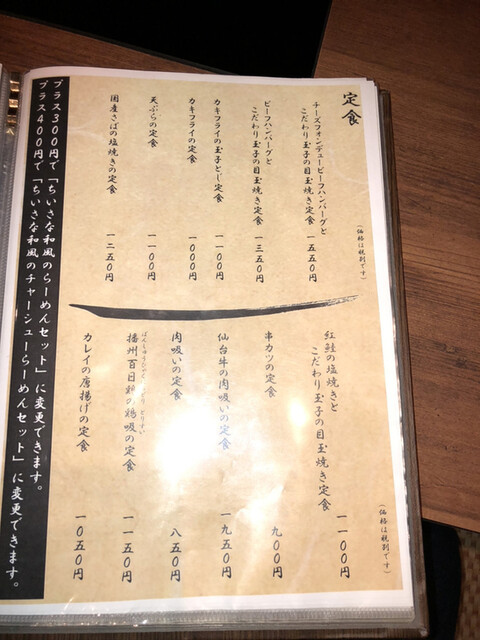 定食
(価格は税別です)
チーズフォンデュービーフハンバーグと
こだわり玉子の目玉焼き定食 一五五〇円
ビーフハンバーグと
こだわり玉子の目玉焼き定食 一三五〇円
カキフライの玉子とじ定食 一一〇〇円
カキフライの定食 一〇〇〇円
天ぷらの定食 一一〇〇円
国産さばの塩焼きの定食 一二五〇円
紅鮭の塩焼きと
こだわり玉子の目玉焼き定食 一一〇〇円
(価格は税別です)
串カツの定食 九〇〇円
仙台牛の肉吸いの定食 一九五〇円
肉吸いの定食 八五〇円
ばんしゅうひゃくにちどり とりすい
播州百日鶏の鶏吸の定食 一一五〇円
カレイの唐揚げの定食 一〇五〇円
プラス300円で「ちいさな和風のらーめんセット」に変更できます。
プラス400円で「ちいさな和風のチャーシューらーめんセット」に変更できます。